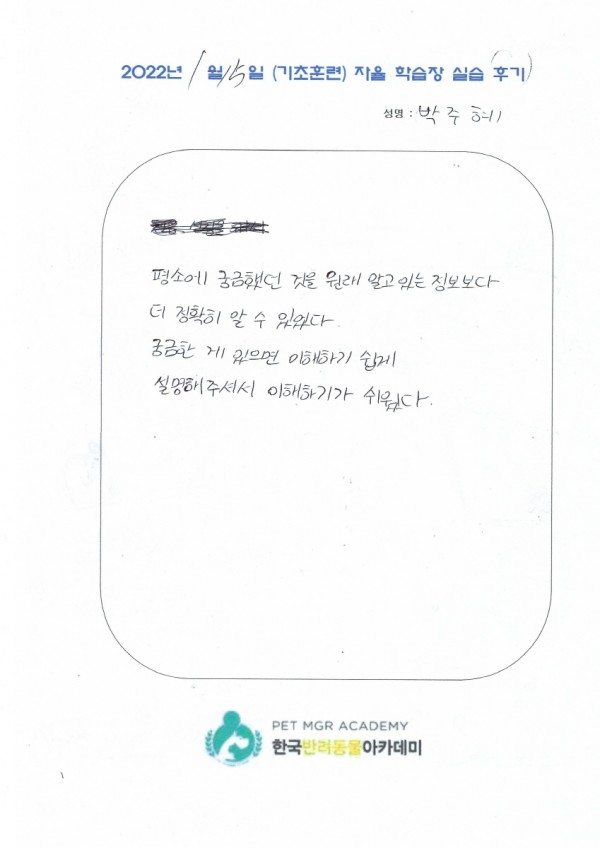 2022년 1월 15일 (기초훈련) 자율 학습장 실습 (후기)
성명 : 박주혜
평소에 궁금했던 것을 원래 알고 있는 정보보다
더 정확히 알 수 있었다.
궁금한 게 있으면 이해하기 쉽게
설명해주셔서 이해하기가 쉬웠다.
PET MGR ACADEMY
한국반려동물아카데미